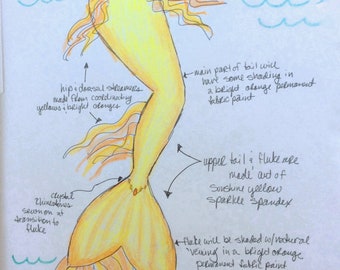 main part of tail will
have some shading in
a bright orange permanent
fabric paint
hip & dorsal streamers
made from coordinating
yellows & bright oranges
upper tail & fluke are
made out of
Sunshine yellow
Sparkle Spandex
crystal
rhinestones
sewn on at
transition to
fluke
fluke will be shaded w/natural
veining in a bright orange
permanent fabric paint